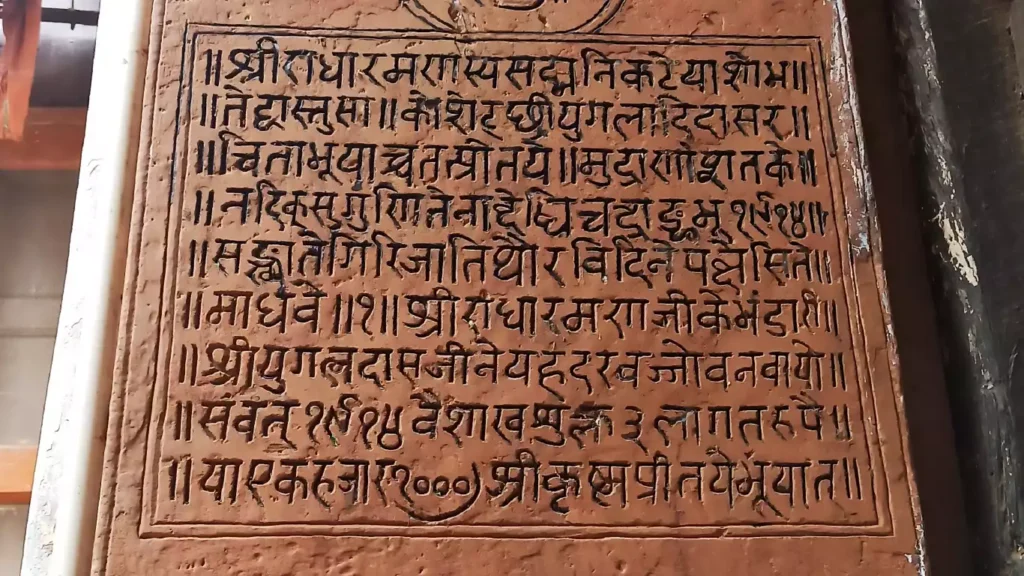 ॥श्रीराधारमणस्यसद्मनिकटेयाशोभ॥
॥तेद्वास्तुसा॥कोशेट्छ्रीयुगलादिदासर॥
॥चिताभूयाच्चतत्प्रीतये॥मुद्राणांशतके॥
॥नदिक्सुगुणितेनाद्दे
॥गिरिजातिथौरविदिनेपक्षेसिते॥
॥माधवे॥१॥श्रीराधारमणजीकेभंडारी॥
॥श्रीयुगलदासजीनेयहदरवज्जोवनवायो॥
॥संवत् १९१४ वैशाखशुक्ल ३ लागतरुपै॥
॥याएकहजार१०००)श्रीकृष्णप्रीतयेभूयात॥